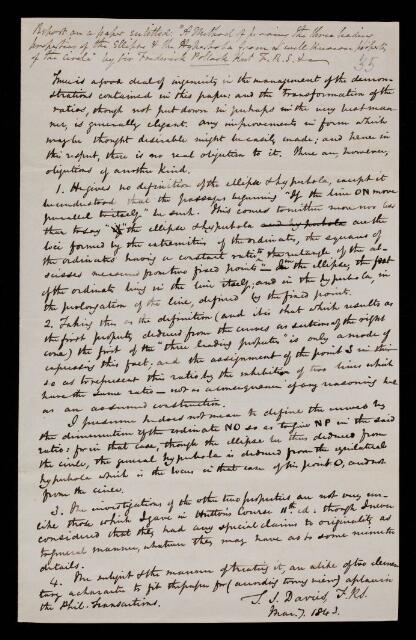 Report on a paper entitled: "A Method of proving the three leading
properties of the Ellipse & the Hyperbola from a well known property
of the circle" by Sir Frederick Pollock Knt F.R.S. &c
35
There is a good deal of ingenuity in the management of the demon-
strations contained in this paper: and the transformation of the
ratios, though not put down in perhaps in the very best man-
ner, is generally elegant. Any improvements in form which
may be thought desirable might be easily made; and hence in
this respect, there is no real objection to it. There are, however,
objections of another kind.
1. He gives no definition of the ellipse & hyperbola, except it
be understood that the passages beginning "If the line ON move
parallel to itself" be such. This comes to neither more nor less
than to say the ellipse & hyperbola are the
loci formed by the extremities of the ordinates, the squares of
the ordinates having a constant ratio to the rectangle of the ab-
scisses measured from two fixed points – In the ellipse, the foot
of the ordinate being in the line itself, and in the hyperbola, in
the prolongation of the line, defined by the fixed point.
2. Taking this as the definition (and it is that which results as
the first property deduced from the curves as sections of the right
cone) the first of the "three leading properties" is only a mode of
expressing this fact; and the assignment of the point S in this
so as to represent this ratio by the exhibition of two lines which
have the same ratio – not as a consequence of any reasoning but
as an assumed construction.
I presume he does not mean to define the curves by
the diminution of the ordinate NO so as to give NP in the said
ratio: for in that case, though the ellipse be thus deduced from
the circle, the general hyperbola is deduced from the equilateral
hyperbola which is the locus in that case of the point O, and not
from the circle.
3. The investigations of the other two properties are not very un-
like those which I gave in Hutton's Course 11th ed. though I never
considered that they had any special claims to originality as
to general manner, whatever they may have as to some minute
details.
4. The subject & the manner of treating it, are alike of too elemen-
tary a character to fit the paper for (according to my view) a place in
the Phil. Transactions.
T. S. Davies, F.R.S.
Mar. 7. 1843.